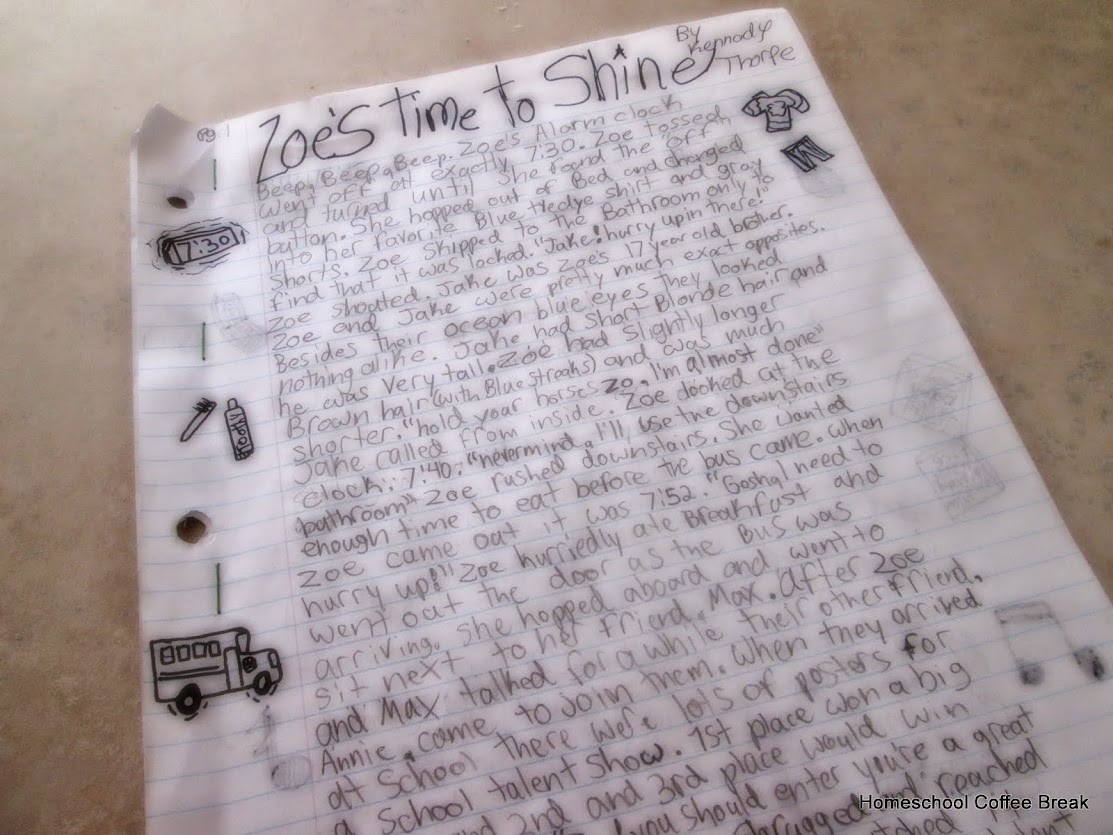 By
Kennady
Thorpe
Pg. 1
Zoe's Time to Shine
Beep, Beep, Beep. Zoe's Alarm clock
went off at exactly 7:30. Zoe tossed
and turned until she found the off
button. She hopped out of Bed and changed
into her favorite Blue tiedye shirt and gray
shorts. Zoe skipped to the Bathroom only to
find that it was locked. "Jake! hurry up in there!"
Zoe shouted. Jake was Zoe's 17 year old brother.
Zoe and Jake were pretty much exact opposites.
Besides their ocean blue eyes they looked
nothing alike. Jake had short Blonde hair and
he was very tall. Zoe had slightly longer
Brown hair (with Blue streaks) and was much
shorter. "hold your horses Zo, I'm almost done"
Jake called from inside. Zoe looked at the
clock: 7:40. "nevermind, I'll use the downstairs
bathroom" Zoe rushed downstairs. She wanted
enough time to eat before the bus came. When
Zoe came out it was 7:52. "Gosh, I need to
hurry up!" Zoe hurriedly ate Breakfast and
went out the door as the Bus was
arriving. She hopped aboard and went to
sit next to her friend, Max. After Zoe
and Max talked for a while their other friend,
Annie, came to join them. When they arrived
at School there were lots of posters for
a School talent show. 1st place won a big
and 2nd and 3rd place would win
you should enter you're a great
shrugged and reached
7:30
Homeschool Coffee Break